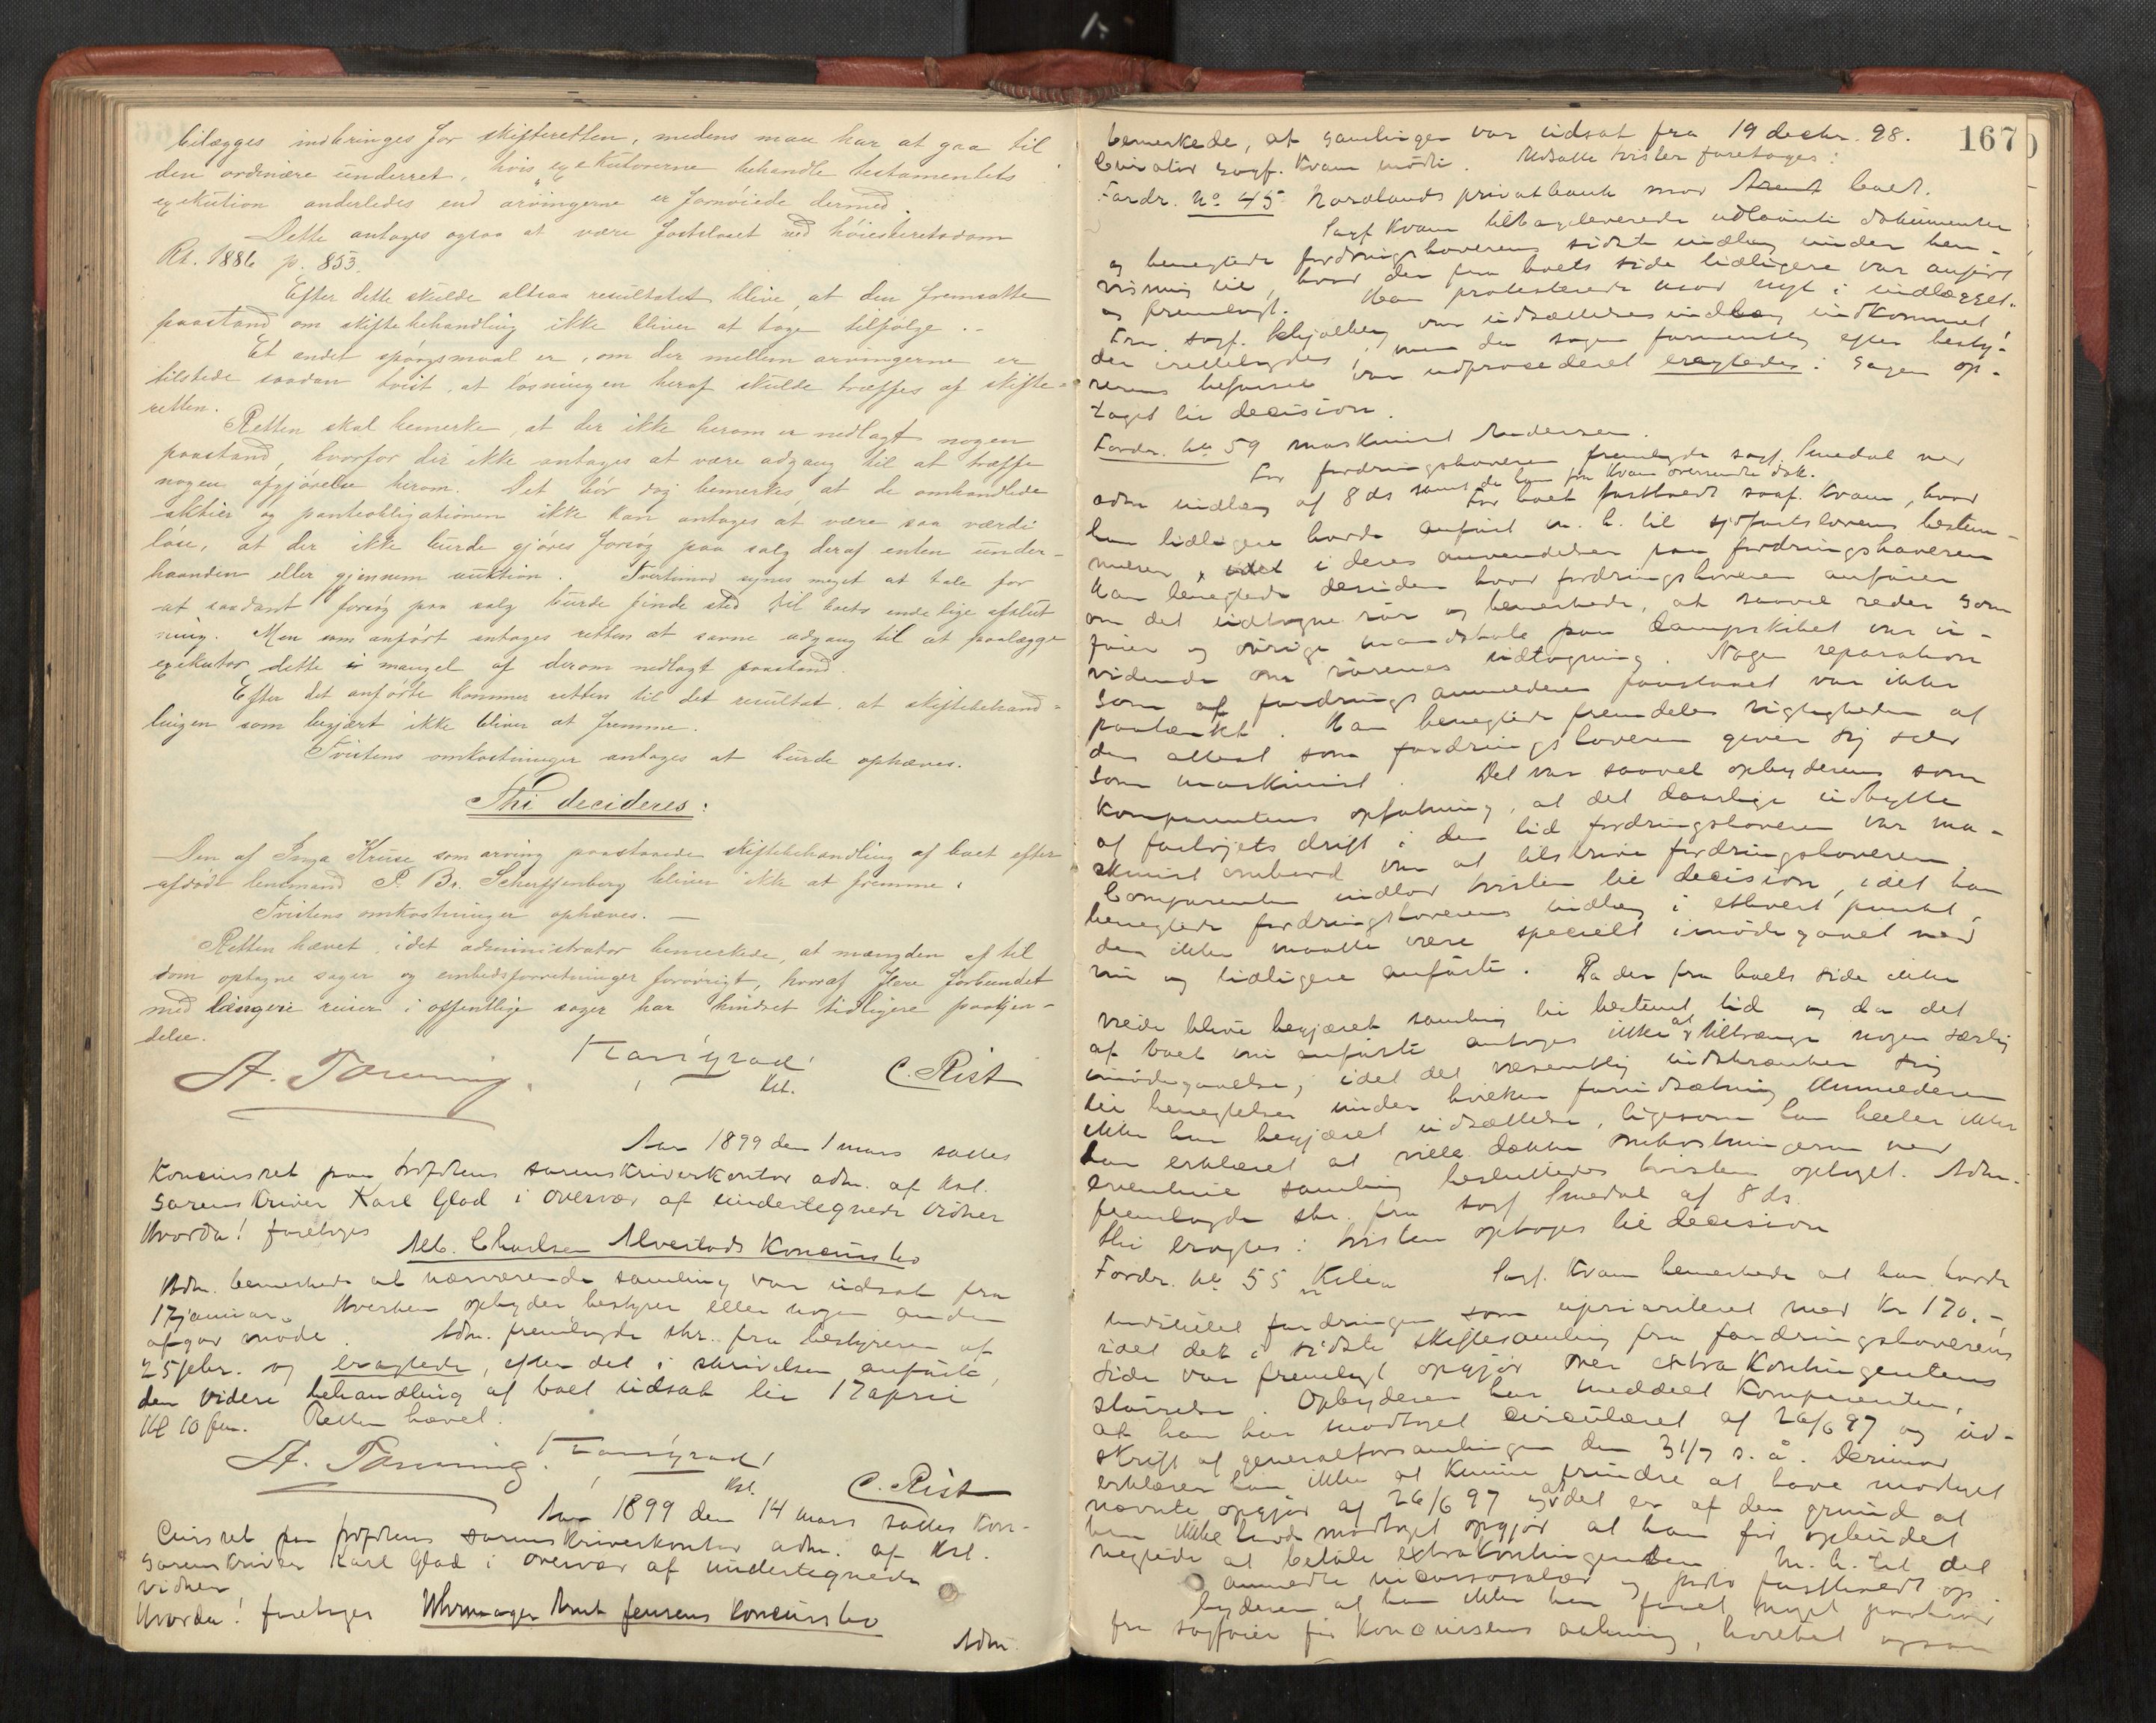 bilægges indbringes for skifteretten, medens man har at gaa til
den ordinære underret, hvis exekutorerne behandle testamentets
exekution anderledes end arvingerne er fornøiede dermed.
Dette antages ogsaa at være fastslaaet ved høiesteretsdom
Rt. 1886 p. 853.
Efter dette skulde altsaa resultatet blive, at den fremsatte
paastand om skiftebehandling ikke bliver at tage tilfølge.-
Et andet spørgsmaal er, om der mellem arvingerne er
tilstede saadan tvist, at løsningen heraf skulde træffes af skifte-
retten.
Retten skal bemerke, at der ikke herom er nedlagt nogen
paastand, hvorfor der ikke antages at være adgang til at træffe
nogen afgjørelse herom. Det bør dog bemerkes, at de omhandlede
aktier og panteobligationen ikke kan antages at være saa værdi
løse, at der ikke burde gjøres forsøg paa salg deraf enten under-
haanden eller gjennem auktion. Tvertimod synes meget at tale for
at saadant forsøg paa salg burde finde sted til boets endelige afslut
ning. Men som anført antages retten at savne adgang til at paalægge
exekutor dette i mangel af derom nedlagt paastand.
Efter det anførte kommer retten til det resultat, at skiftebehand-
lingen som begjært ikke bliver at fremme.
Tvistens omkostninger antages at burde ophæves.
Thi decideres:
Den af Inga Kruse som arving paastaaede skiftebehandling af boet efter
afdøde lensmand P. Br. Scherffenberg bliver ikke at fremme.
Tvistens omkostninger ophæves. —
Retten hævet, idet administrator bemerkede, at mængden af til
dom optagne sager og embedsforretninger forøvrigt, hvoraf flere forbundet
med længere reiser i offentlige sager har hindret tidligere paakjen-
delse.
Karl Glad
Kst.
C. Rist
Aar 1899 den 1 mars sattes
Konkursret paa sorenskriverkontor adm. af kst.
sorenskriver Karl Glad i overvær af undertegnede vidner
Hvorda! foretoges
Alb. Charlsen Alvestads Konkursbo
Adm. bemerkede at nærværende samling var udsat fra
17 januar. Hverken opbyder bestyrer eller nogen anden
afgav møde. Adm. fremlagde skr. fra bestyreren af
25 febr. og eragtede, efter det i skrivelsen anførte,
den videre behandling af boet udsat til 17 april
Kl 10 fm. Retten hævet.
Karl Glad
Kst.
C. Rist
Aar 1899 den 14 mars sattes Kon-
cursret paa sorenskriverkontor adm. af kst.
sorenskriver Karl Glad i overvær af undertegnede
vidner
Hvorda! foretoges Uhrmager Arnt Jensens Concursbo
Adm.
167
bemerkede, at samlingen var udsat fra 19 decbr. 98.
Curator sagf. Kvam mødte. Udsatte tvister foretoges:
Fordr. No 45 Nordlands privatbank mod boet.
Sagf Kvam tilbageleverede udlaante dokumenter
og benegtede fordringshaverens sidste indlæg under hen-
visning til, hvad der fra boets side tidligere var anført
og fremlagt. Han protesterede mod nyt i indlægget.
Fra sagf. var udsættelsesindlæg indkommet!
der irettelagdes, men da sagen formentlig efter besty-
rerens befarende var udprocederet eragtedes: Sagen op-
taget til decision.
Fordr. No 59 maskinist Andersen.
For fordringshaveren fremlagde sagf. Smedal ved
adm indlæg af 8 ds samt de ham fra Kvam oversendte dok.
For boet fastholdt sagf. Kvam, hvad
han tidligere havde anført m. h. til sjøfartslovens bestem-
melser i deres anvendelse paa fordringshaveren
Han benegtede desuden hvad fordringshaveren anfører
om det udtagne rør og bemerkede, at saavel reder som
fører og øvrige mandskab paa dampskibet var u-
vidende om rørenes udtagning. Nogen reparation
som af fordringsanmelderen paastaaet var ikke
paatænkt. Han benegtede fremdeles rigtigheden af
den attest som fordringshaveren giver sig selv
som maskinist. Det var saavel opbyderens som
Komparentens opfatning, at det daarlige udbytte
af fartøjets drift i den tid fordringshaveren var ma-
skinist ombord var at tilskrive fordringshaveren.
Comparenten indlod tvisten til decision, idet han
benegtede fordringshaverens indlæg i ethvert punkt,
der ikke maatte være specielt imødegaaet ved
nu og tidligere anførte. Da der fra boets side ikke
vides blive begjæret samling til bestemt tid og da det
af boet nu anførte antages ikke at tiltrænge nogen særlig
imødegaaelse, idet det væsentlig indskrænker sig
til benegtelser under hvilken forudsætning Anmelderen
ikke har begjæret udsættelse, ligesom han heller ikke
har erklæret at ville dække omkostningerne ved
eventuel samling besluttedes tvisten optaget. Adm.
fremlagde skr. fra sagf Smedal af 8 ds.
thi eragtes: tvisten optages til decision
Fordr. No 55 Sagf. Kvam bemerkede at han havde
indstillet fordringen som uprioriteret med Kr 170.-,
idet det i sidste skiftesamling fra fordringshaverens
side var fremlagt opgjør over extra kontingentens
størrelse. Opbyderen har meddelt Komparenten,
at han har modtaget circulæret af 26/6 97 og ud-
skrift af generalforsamlingen den 31/7 s. å. Derimod
erklærer han ikke at kunne erindre at have modtaget
nævnte opgjør af 26/6 97 og at det er af den grund at
han ikke havde modtaget opgjør at han før opbudet
negtede at betale extrakontingenten. M. h. til det
anmeldte incassosalær og porto fastholdt op
byderen at han ikke har faaet noget paakrav
fra sagfører før Koncursens aabning, hvorhos ogsaa